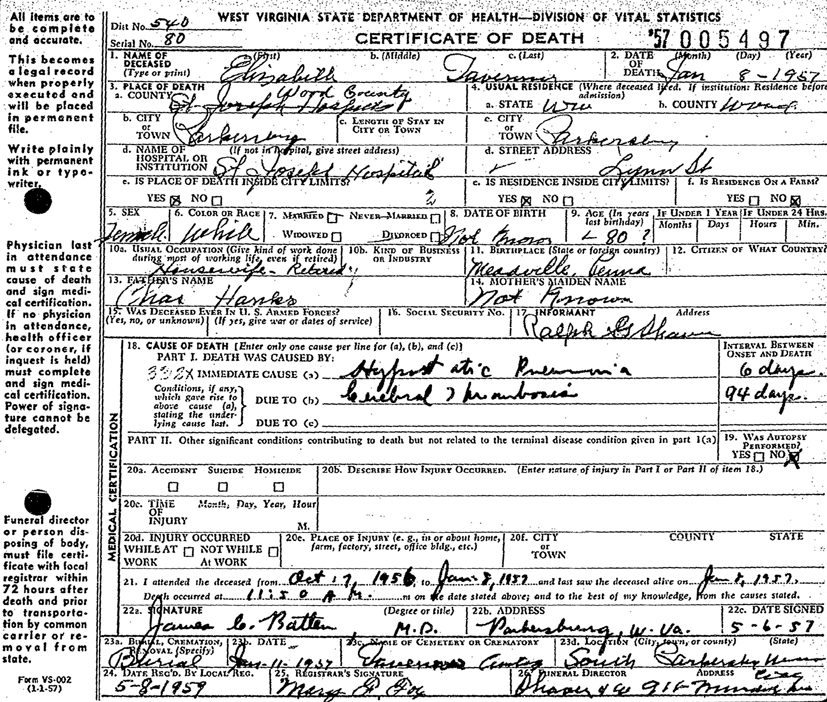 WEST VIRGINIA STATE DEPARTMENT OF HEALTH—DIVISION OF VITAL STATISTICS
Dist No. 540
Serial No. 80
CERTIFICATE OF DEATH
'57 005497
All items are to be complete and accurate.
This becomes a legal record when properly executed and will be placed in permanent file.
Write plainly with permanent ink or typewriter.
Physician last in attendance must state cause of death and sign medical certification. If no physician in attendance, health officer (or coroner, if inquest is held) must complete and sign medical certification. Power of signature cannot be delegated.
Funeral director or person disposing of body, must file certificate with local registrar within 72 hours after death and prior to transportation by common carrier or removal from state.
Form VS-002
(1-1-57)
1. NAME OF DECEASED (Type or print) (First) b. (Middle) c. (Last)
Elizabeth
2. DATE OF DEATH (Month) (Day) (Year)
Jan 8-1957
3. PLACE OF DEATH
a. COUNTY Wood County
St. Joseph Hospital
4. USUAL RESIDENCE (Where deceased lived. If institution: Residence before admission)
a. STATE b. COUNTY
b. CITY OR TOWN Parkersburg
c. LENGTH OF STAY IN CITY OR TOWN
c. CITY OR TOWN Parkersburg
d. NAME OF HOSPITAL OR INSTITUTION (If not in hospital, give street address)
St Joseph Hospital
d. STREET ADDRESS
Lynn St
e. IS PLACE OF DEATH INSIDE CITY LIMITS?
YES ☒ NO ☐
2
e. IS RESIDENCE INSIDE CITY LIMITS?
YES ☒ NO ☐
f. IS RESIDENCE ON A FARM?
YES ☐ NO ☒
5. SEX
Female
6. COLOR OR RACE
White
7. MARRIED ☐ NEVER MARRIED ☐
WIDOWED ☐ DIVORCED ☐
8. DATE OF BIRTH
Not Known
9. AGE (In years last birthday)
80 ?
IF UNDER 1 YEAR
Months Days
IF UNDER 24 HRS.
Hours Min.
10a. USUAL OCCUPATION (Give kind of work done during most of working life, even if retired)
Housewife - Retired
10b. KIND OF BUSINESS OR INDUSTRY
11. BIRTHPLACE (State or foreign country)
Meadville, Penna
12. CITIZEN OF WHAT COUNTRY?
13. FATHER'S NAME
Chas Hanks
14. MOTHER'S MAIDEN NAME
Not Known
15. WAS DECEASED EVER IN U. S. ARMED FORCES?
(Yes, no, or unknown) (If yes, give war or dates of service)
16. SOCIAL SECURITY NO.
17. INFORMANT Address
Ralph
MEDICAL CERTIFICATION
18. CAUSE OF DEATH [Enter only one cause per line for (a), (b), and (c)]
PART I. DEATH WAS CAUSED BY:
INTERVAL BETWEEN ONSET AND DEATH
332X IMMEDIATE CAUSE (a) Hypostatic Pneumonia 6 days
Conditions, if any, which gave rise to above cause (a), stating the underlying cause last.
DUE TO (b) Cerebral Thrombosis 94 days
DUE TO (c)
PART II. Other significant conditions contributing to death but not related to the terminal disease condition given in part 1(a)
19. WAS AUTOPSY PERFORMED?
YES ☐ NO ☒
20a. ACCIDENT SUICIDE HOMICIDE
☐ ☐ ☐
20b. DESCRIBE HOW INJURY OCCURRED. (Enter nature of injury in Part I or Part II of item 18.)
20c. TIME OF INJURY Month, Day, Year, Hour
M.
20d. INJURY OCCURRED
WHILE AT WORK ☐ NOT WHILE AT WORK ☐
20e. PLACE OF INJURY (e. g., in or about home, farm, factory, street, office bldg., etc.)
20f. CITY OR TOWN COUNTY STATE
21. I attended the deceased from Oct 17, 1956, to Jan 8, 1957 and last saw the deceased alive on Jan 8, 1957.
Death occurred at 11:50 A M. m on the date stated above; and to the best of my knowledge, from the causes stated.
22a. SIGNATURE (Degree or title)
James C. Batten M.D.
22b. ADDRESS
Parkersburg, W. Va.
22c. DATE SIGNED
5-6-57
23a. BURIAL, CREMATION, REMOVAL (Specify)
Burial
23b. DATE
Jan-11-1957
23c. NAME OF CEMETERY OR CREMATORY
23d. LOCATION (City, town, or county) (State)
South Parkersburg
24. DATE REC'D. BY LOCAL REG.
5-8-1959
25. REGISTRAR'S SIGNATURE
Mary F. Fox
26. FUNERAL DIRECTOR ADDRESS